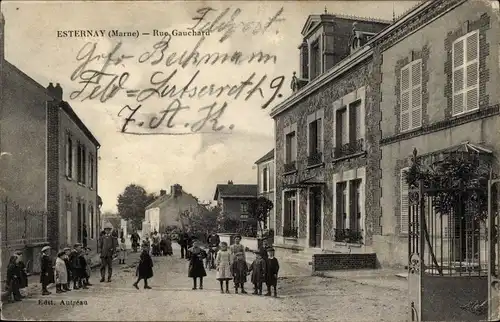 ESTERNAY (Marne) — Rue Gauchard
Feldpost
Gefr. Beckmann
Feld = Lustlazarett 9.
7. A. K.
Edit. Autréau